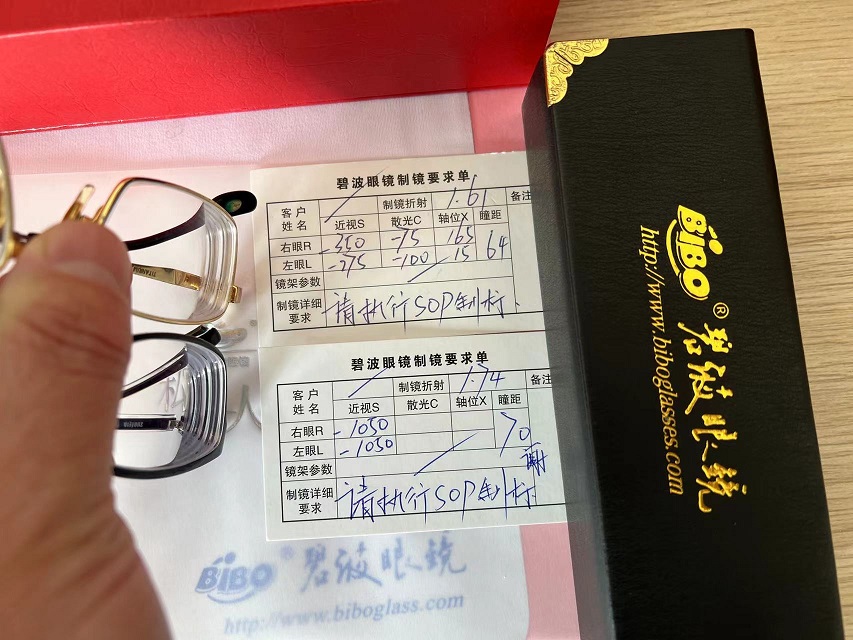 碧波眼镜制镜要求单
客户姓名 制镜折射 1.61 备注
近视S 散光C 轴位X 瞳距
右眼R -350 -75 165 64
左眼L -275 -100 15
镜架参数
制镜详细要求 请执行SOP制标.
碧波眼镜制镜要求单
客户姓名 制镜折射 1.74 备注
近视S 散光C 轴位X 瞳距
右眼R -1050 70
左眼L -1050
镜架参数 谢
制镜详细要求 请执行SOP制标
BiBO® 碧波眼镜
http://www.biboglass.com
BiBO® 碧波眼镜
http://www.biboglasses.com